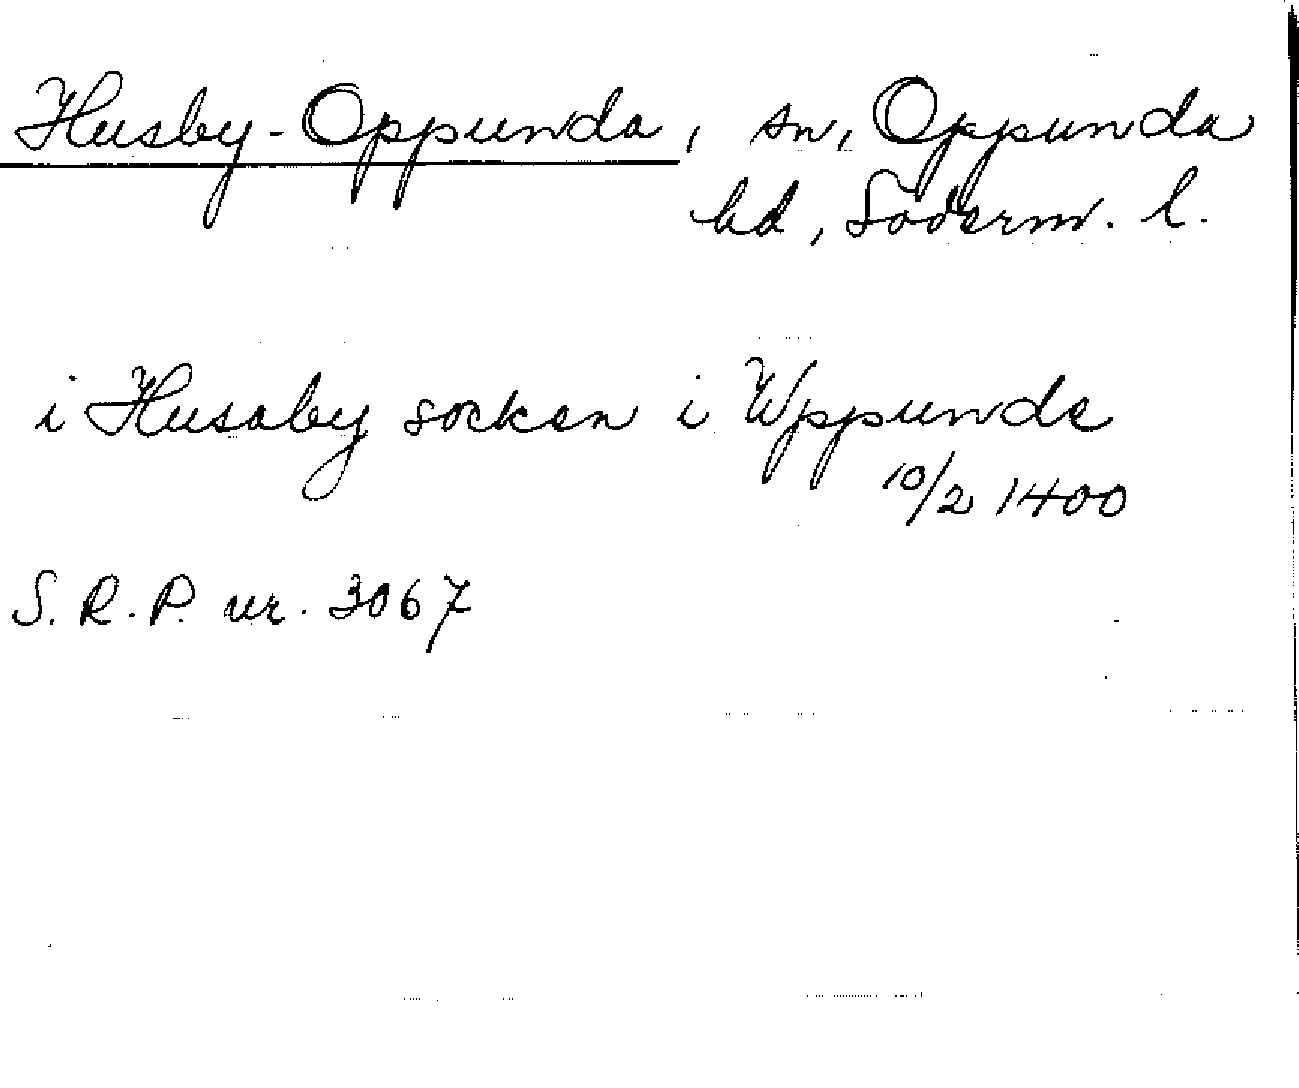 Husby-Oppunda, sn, Oppunda
hd, Söderm. l.
i Husaby socken i Wppunde
10/2 1400
S. R. P. nr. 3067